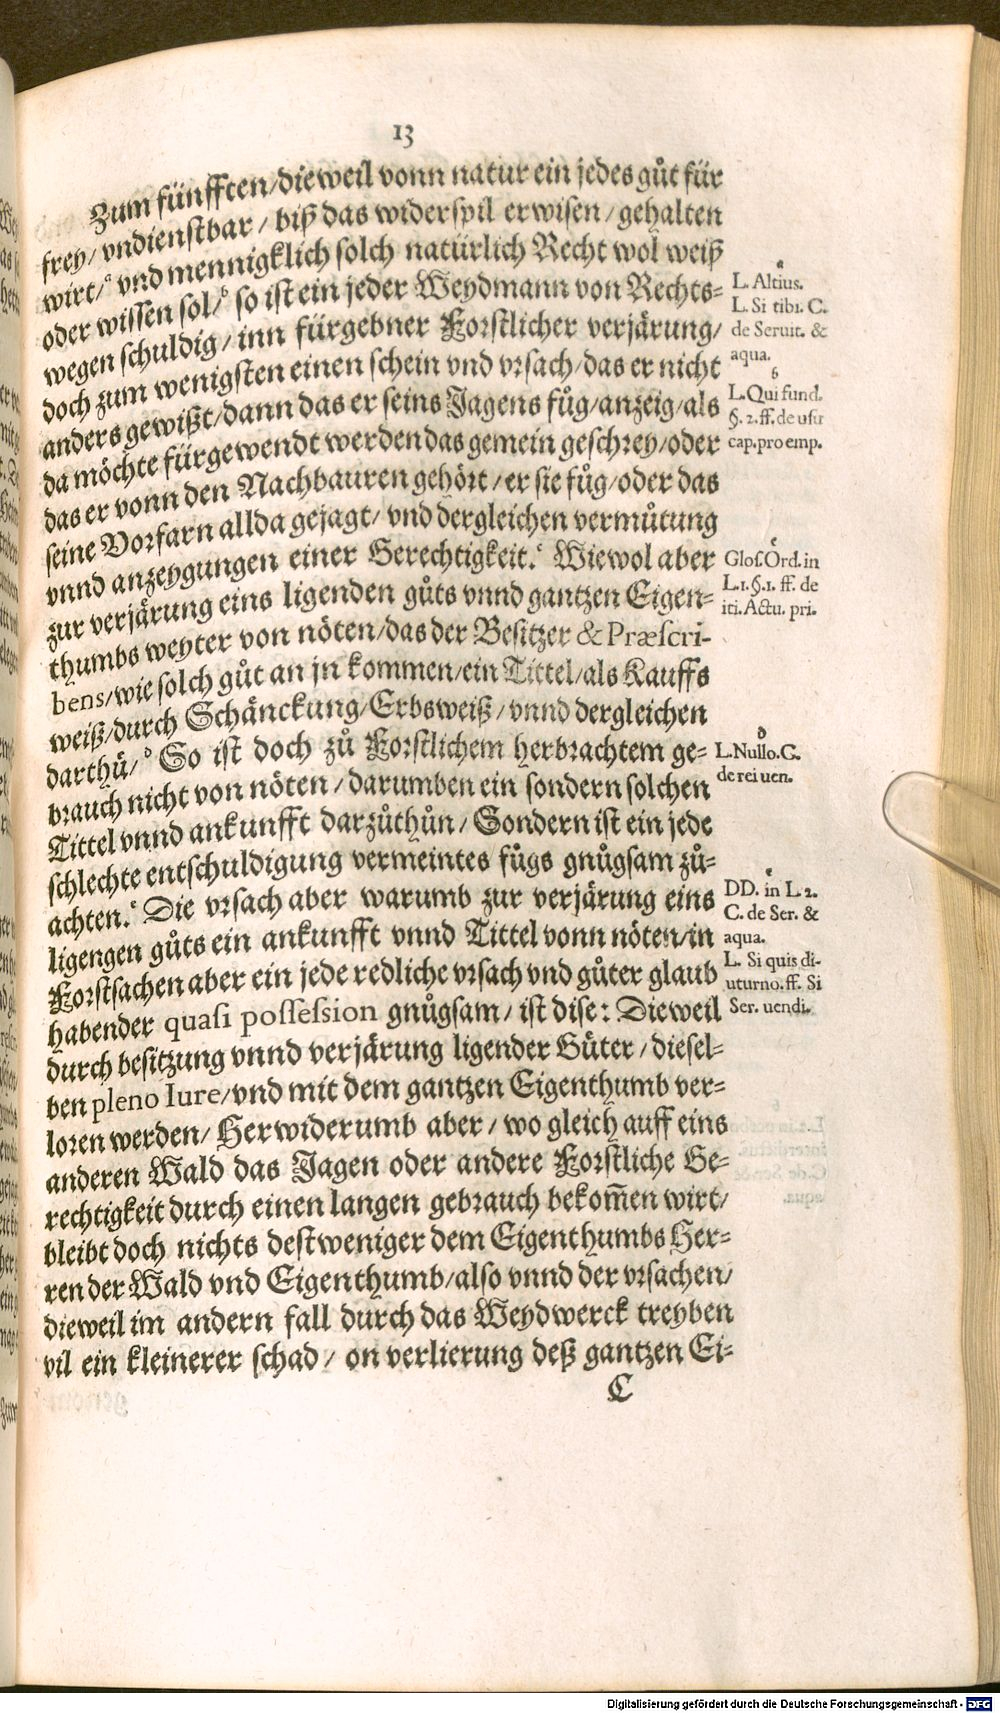 13
Zum fünfften/dieweil vonn natur ein jedes gůt für
frey/ vndienstbar / biß das widerspil erwisen / gehalten
wirt/ᵃ vnd mennigklich solch natürlich Recht wol weiß
oder wissen sol/ᵇ so ist ein jeder Weydmann von Rechts=
wegen schuldig / inn fürgebner Forstlicher verjärung/
doch zum wenigsten einen schein vnd vrsach/das er nicht
anders gewißt/dann das er seins Jagens fůg/anzeig/als
da möchte fürgewendt werden das gemein geschrey/oder
das er vonn den Nachbauren gehört/er sie fůg/oder das
seine Vorfarn allda gejagt/ vnd dergleichen vermůtung
vnnd anzeygungen einer Gerechtigkeit.ᶜ Wiewol aber
zur verjärung eins ligenden gůts vnnd gantzen Eigen=
thumbs weyter von nöten/das der Besitzer & Præscri-
bens/wie solch gůt an jn kommen/ein Tittel/als Kauffs
weiß/durch Schänckung/Erbsweiß/vnnd dergleichen
darthů/ᵈ So ist doch zů Forstlichem herbrachtem ge=
brauch nicht von nöten/darumben ein sondern solchen
Tittel vnnd ankunfft darzůthůn/ Sondern ist ein jede
schlechte entschuldigung vermeintes fůgs gnůgsam zů=
achten.ᵉ Die vrsach aber warumb zur verjärung eins
ligengen gůts ein ankunfft vnnd Tittel vonn nöten/in
Forstsachen aber ein jede redliche vrsach vnd gůter glaub
habender quasi possession gnůgsam / ist dise: Dieweil
durch besitzung vnnd verjärung ligender Güter / diesel=
ben pleno Iure/vnd mit dem gantzen Eigenthumb ver=
loren werden/ Herwiderumb aber / wo gleich auff eins
anderen Wald das Jagen oder andere Forstliche Ge=
rechtigkeit durch einen langen gebrauch bekom̃en wirt/
bleibt doch nichts destweniger dem Eigenthumbs Her=
ren der Wald vnd Eigenthumb/also vnnd der vrsachen/
dieweil im andern fall durch das Weydwerck treyben
vil ein kleinerer schad / on verlierung deß gantzen Ei=
C
a
L. Altius.
L. Si tibi. C.
de Seruit. &
aqua.
b
L. Qui fund.
§. 2. ff. de usu
cap. pro emp.
c
Glos. Ord. in
L. 1. §. 1. ff. de
iti. Actu. pri.
d
L. Nullo. C.
de rei uen.
e
DD. in L. 2.
C. de Ser. &
aqua.
L. Si quis di-
uturno. ff. Si
Ser. uendi.
Digitalisierung gefördert durch die Deutsche Forschungsgemeinschaft - DFG